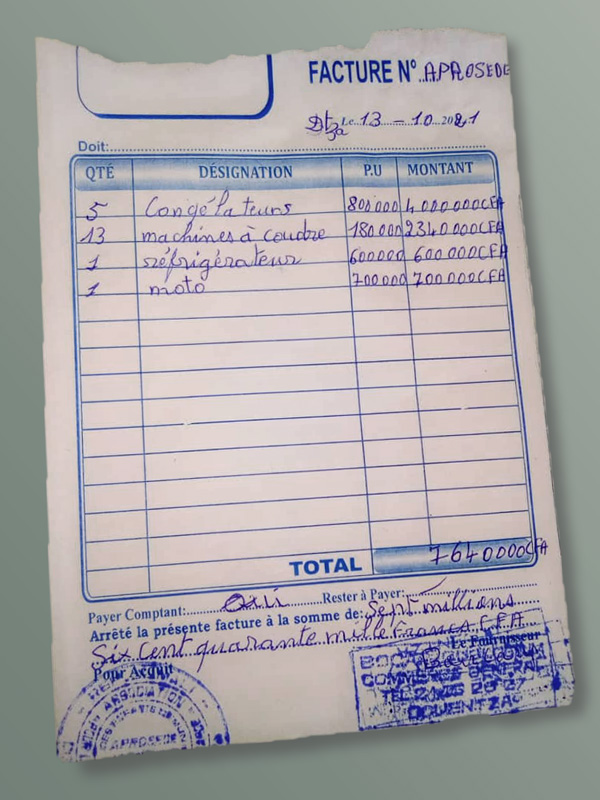 FACTURE N° APROSEDE
Dtza Le 13 - 10 2021
Doit:
QTÉ DÉSIGNATION P.U MONTANT
5 Congélateurs 800 000 4 000 000 CFA
13 machines à coudre 180 000 2340 000 CFA
1 réfrigérateur 600 000 600 000 CFA
1 moto 700 000 700 000 CFA
TOTAL 7640000 CFA
Payer Comptant: Oui Rester à Payer:
Arrêté la présente facture à la somme de: Sept millions
Six Cent quarante mille Francs CFA
Pour Acquit Le Fournisseur
COMMERCE GENERAL
DOUENTZA
ASSOCIATION
APROSEDE